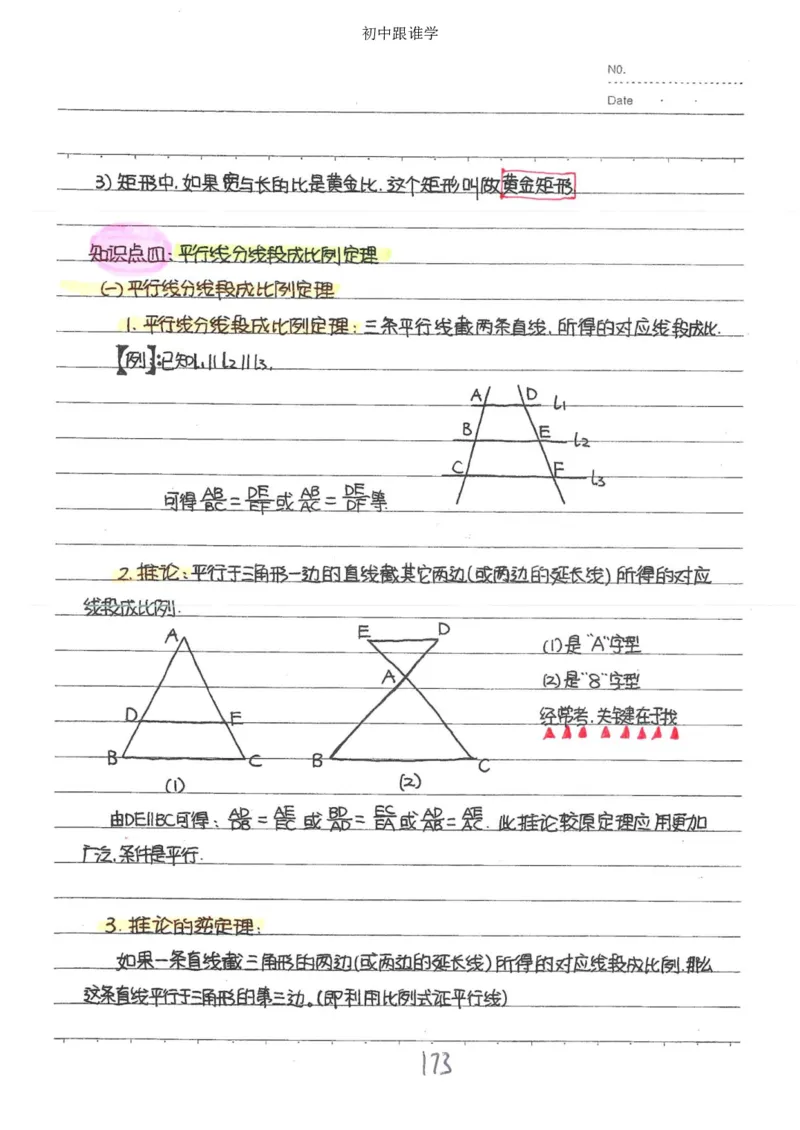 初中跟谁学
NO.
Date
3) 矩形中,如果宽与长的比是黄金比,这个矩形叫做黄金矩形.
知识点四:平行线分线段成比例定理
(一)平行线分线段成比例定理
1. 平行线分线段成比例定理:三条平行线截两条直线,所得的对应线段成比.
【例】:已知l₁∥l₂∥l₃,
A D l₁
B E l₂
C F l₃
可得 AB/BC = DE/EF 或 AB/AC = DE/DF 等.
2. 推论:平行于三角形一边的直线截其它两边(或两边的延长线)所得的对应
线段成比例.
A E D (1)是"A"字型
A (2)是"8"字型
D E 经常考,关键在于找
B C B C
(1) (2)
由DE∥BC可得: AD/DB = AE/EC 或 BD/AD = EC/EA 或 AD/AB = AE/AC. 此推论较原定理应用更加
广泛,条件是平行.
3. 推论的逆定理:
如果一条直线截三角形的两边(或两边的延长线)所得的对应线段成比例,那么
这条直线平行于三角形的第三边。(即利用比例式证平行线)
173